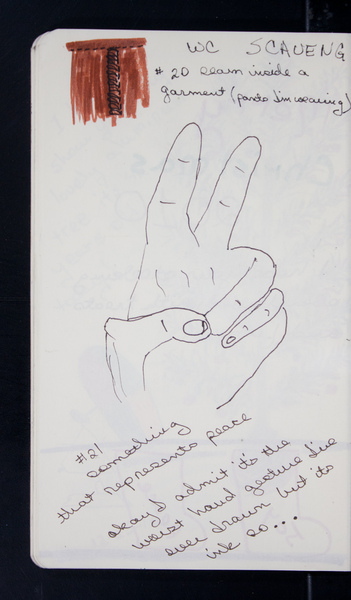 WC SCAVENG
# 20 seam inside a
garment (pants I'm wearing)
#21
something
that represents peace
okay I admit it's the
worst hand gesture I've
ever drawn but it's
ink so...